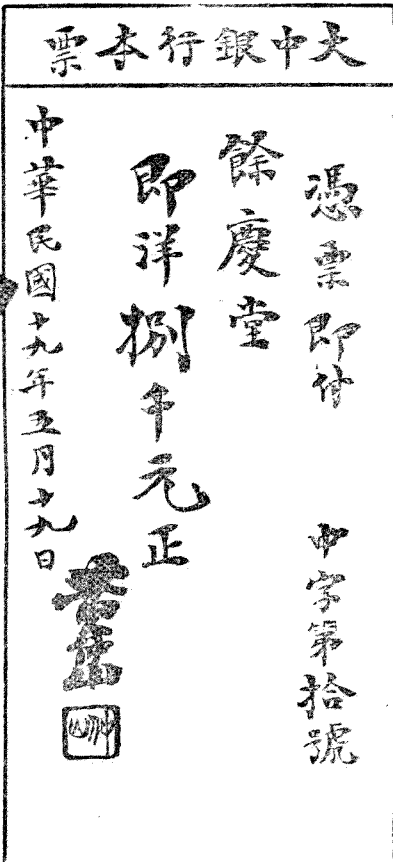 大中銀行本票
憑票即付
中字第拾號
餘慶堂
即洋捌千元正
中華民國十九年五月十九日